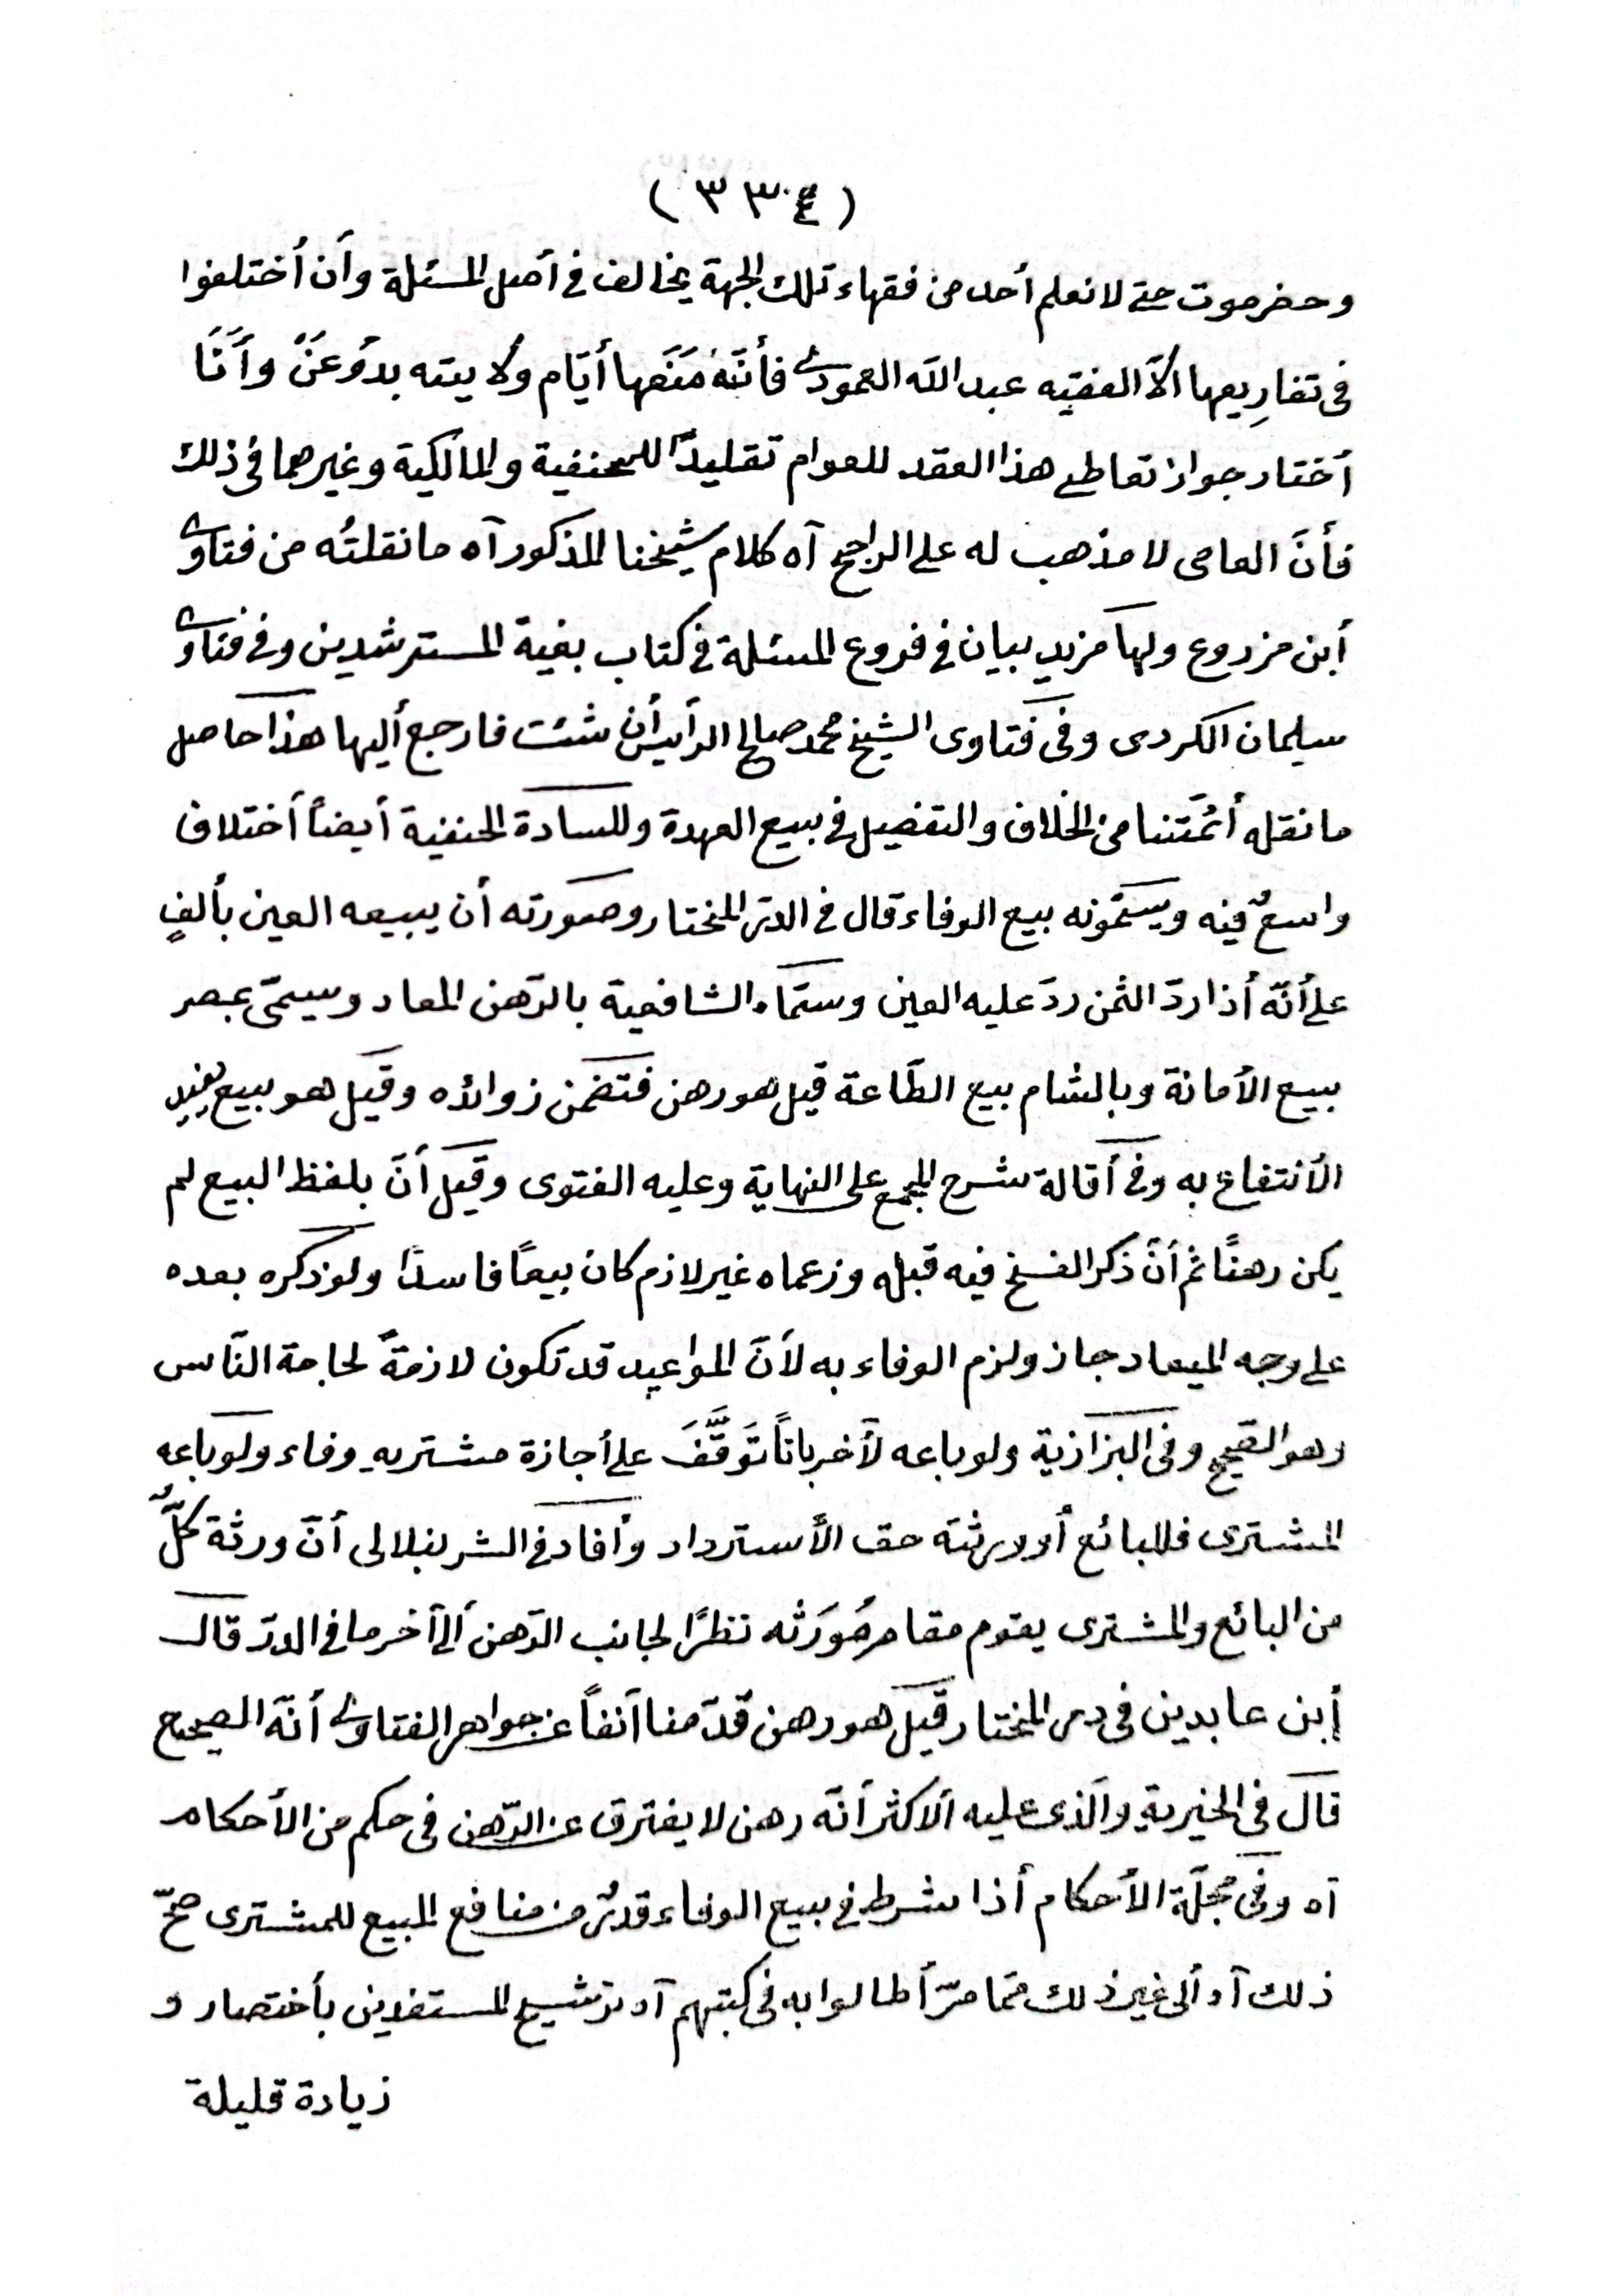 (٣٣٤)
وحضرموت حتى لا نعلم أحد من فقهاء تلك الجهة يخالف فى أصل المسئلة وأن أختلفوا
فى تفارِيعها الاّ الفقيه عبد اللّه العمودى فأنّه مَنَعها أيّام ولايته بدَوعَنْ وأَنَا
أختار جواز تعاطى هذا العقد للعوام تقليدًا للحنفية والمالكية وغيرهما فى ذلك
فأنّ العامى لا مذهب له على الراجح آه كلام شيخنا المذكور آه ما نقلتُه من فتاوى
أبن مزروع ولها مزيد بيان فى فروع المسئلة فى كتاب بغية المسترشدين وفى فتاوى
سليمان الكردى وفى فتاوى الشيخ محمد صالح الرأيس أن شئت فارجع أليها هذا حاصل
ما نقله أئمّتنا من الخلاف والتفصيل فى بيع العهدة وللسادة الحنفية أيضاً أختلاف
واسعٌ فيه ويسمّونه بيع الوفاء قال فى الدرّ المختار وصورته أن يبيعه العين بألفٍ
على أنّه أذا ردّ الثمن ردّ عليه العين وسمّاه الشافعية بالرّهن المعاد ويسمّى بمصر
بيع الأمانة وبالشام بيع الطّاعة قيل هو رهن فتضمن زوائده وقيل هو بيع يفيد
الأنتفاع به وفى أقالة شرح المجمع على النهاية وعليه الفتوى وقيل أنّ بلفظ البيع لم
يكن رهنًا ثم أنّ ذكر الفسخ فيه قبله وزعماه غير لازم كان بيعًا فاسدًا ولو ذكره بعده
على وجه الميعاد جاز ولزم الوفاء به لأنّ المواعيد قد تكون لازمةً لحاجة النّاس
وهو الصّحيح وفى البزازية ولو باعه لآخر باتاً تَوَقَّفَ على أجازة مشتريهِ وفاء ولو باعه
المشترى فللبائع أو ورثته حق الأسترداد وأفاد فى الشرنبلالى أنّ ورثة كلٍّ
من البائع والمشترى يقوم مقام مَورَثه نظرًا لجانب الرّهن ألى آخر ما فى الدرّ قال
أبن عابدين فى رد المختار قيل هو رهن قدّمنا آنفاً عن جواهر الفتاوى أنّه الصحيح
قال فى الخيرية والّذى عليه الاكثر أنّه رهن لا يفترق عن الرّهن فى حكم من الأحكام
آه وفى مجلّة الأحكام أذا شرط فى بيع الوفاء قدرٌ من منافع المبيع للمشترى صحّ
ذلك آه ألى غير ذلك ممّا مرّ أطالوا به فى كتبهم آه ترشيح المستفدين بأختصار و
زيادة قليلة